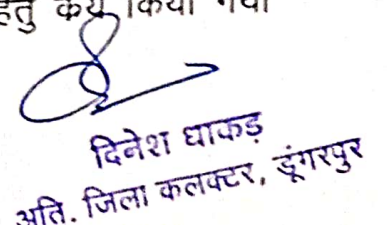 हेतु क्रय किया गया
दिनेश धाकड़
अति. जिला कलक्टर, डूंगरपुर